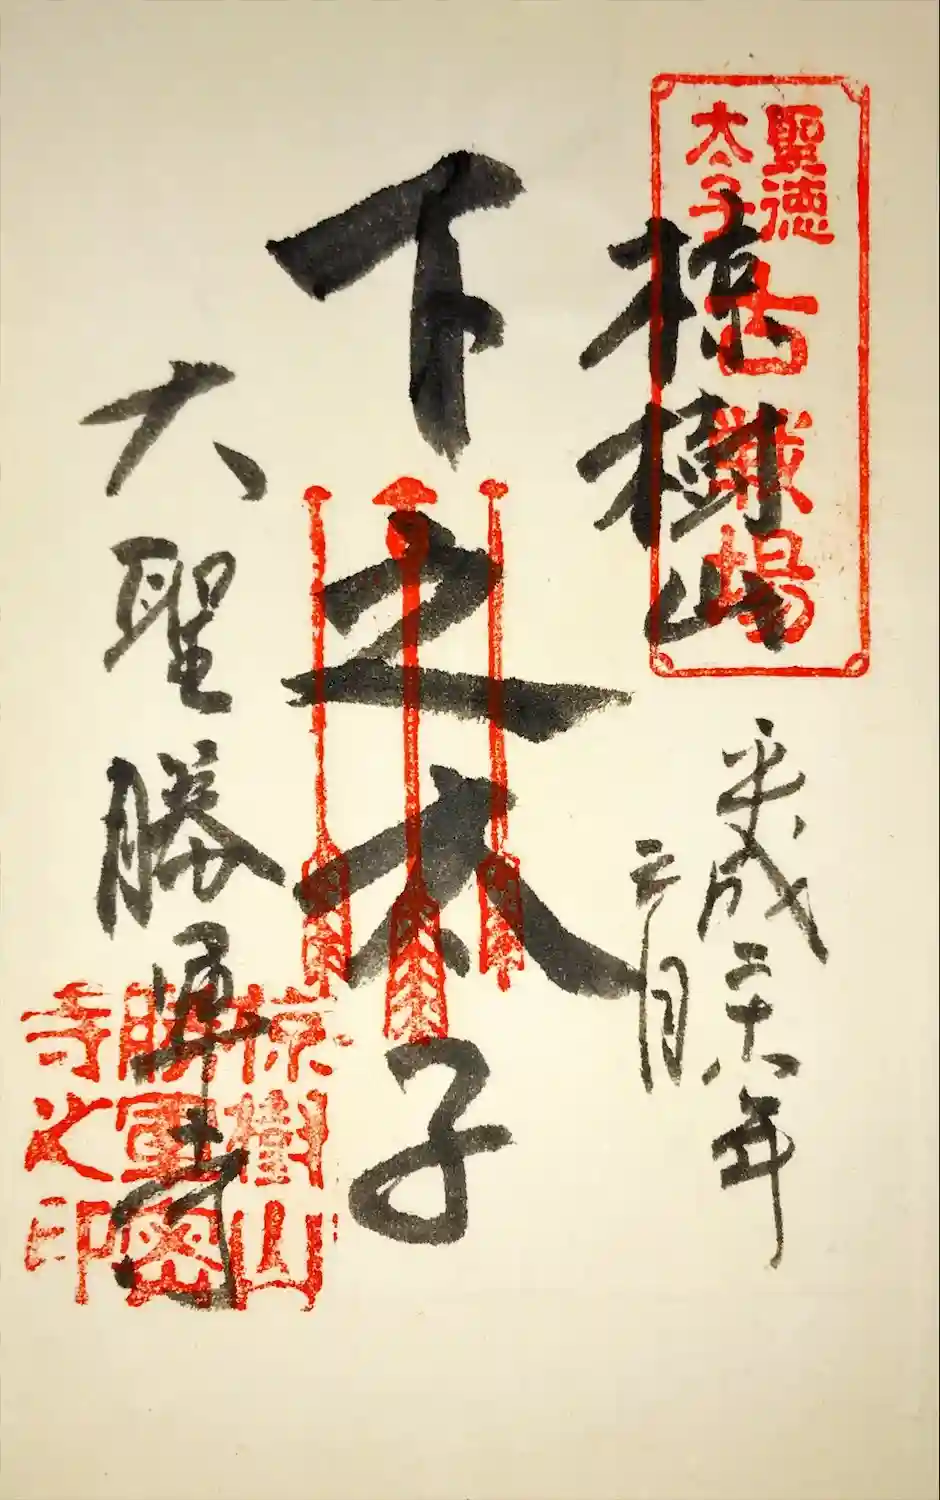 聖徳
太子
古戦場
椋樹山
平成二十六年
二月
下之太子
大聖勝軍寺
椋樹山
勝軍密
寺之印